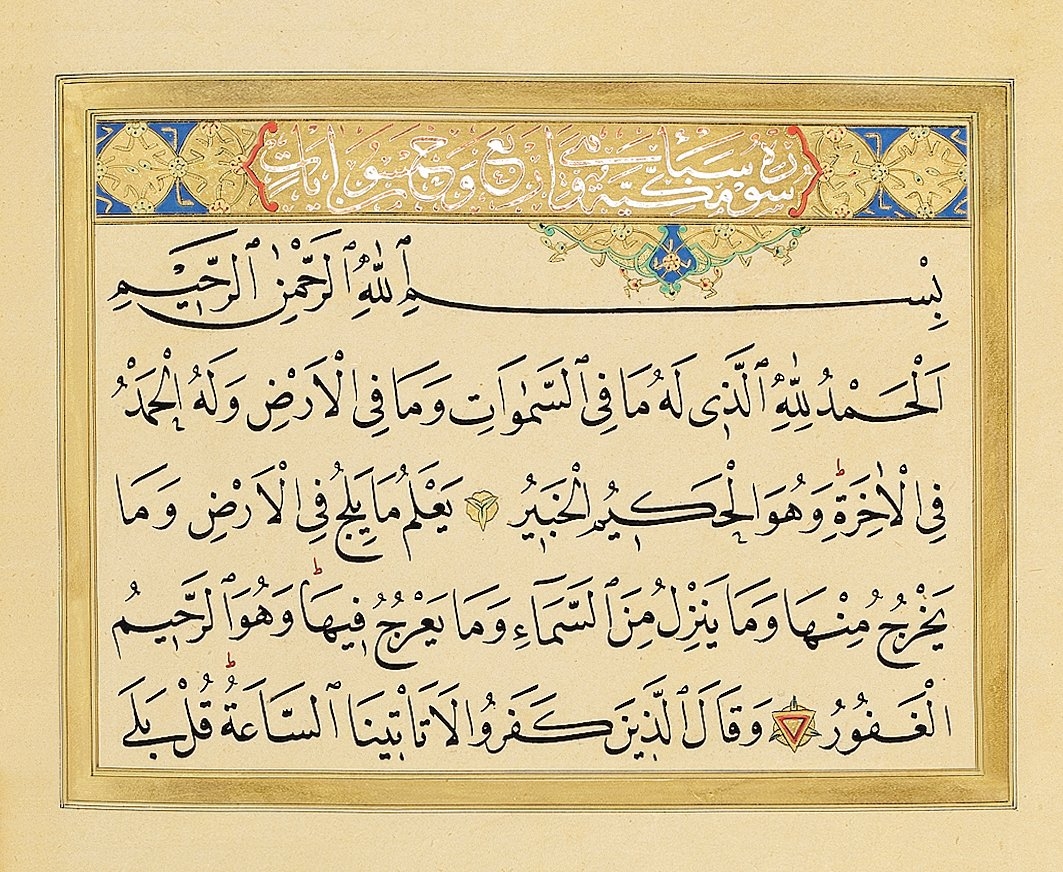 سورة سبا مكية وهي اربع وخمسون ايات
بِسْمِ ٱللّٰهِ ٱلرَّحْمٰنِ ٱلرَّحِيمِ
اَلْحَمْدُ لِلّٰهِ ٱلَّذِى لَهُ مَا فِى ٱلسَّمٰوَاتِ وَمَا فِى الْاَرْضِ وَلَهُ الْحَمْدُ
فِى الْاٰخِرَةِ ط وَهُوَ الْحَكِيمُ الْخَبِيرُ يَعْلَمُ مَا يَلِجُ فِى الْاَرْضِ وَمَا
يَخْرُجُ مِنْهَا وَمَا يَنْزِلُ مِنَ ٱلسَّمَاءِ وَمَا يَعْرُجُ فِيهَا ط وَهُوَ ٱلرَّحِيمُ
الْغَفُورُ وَقَالَ ٱلَّذِينَ كَفَرُوا لَا تَاْتِينَا ٱلسَّاعَةُ ط قُلْ بَلَى